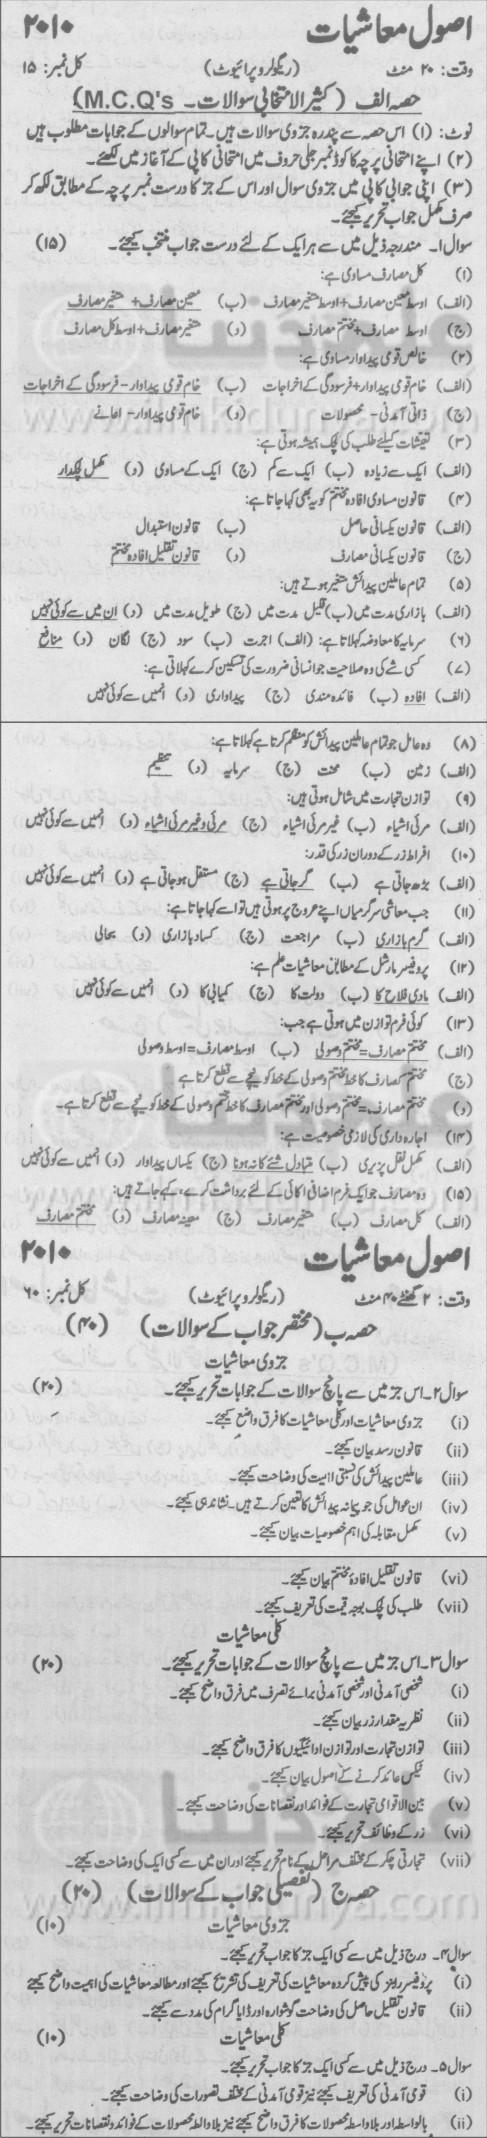 اصول معاشیات ۲۰۱۰
وقت: ۲۰ منٹ (ریگولر و پرائیوٹ) کل نمبر: ۱۵
حصہ الف (کثیر الانتخابی سوالات۔ M.C.Q's)
نوٹ: (۱) اس حصہ سے پندرہ جزوی سوالات ہیں۔ تمام سوالوں کے جوابات مطلوب ہیں
(۲) اپنے امتحانی پرچہ کا کوڈ نمبر جلی حروف میں امتحانی کاپی کے آغاز میں لکھئے۔
(۳) اپنی جوابی کاپی میں جزوی سوال اور اس کے جز کا درست نمبر پرچہ کے مطابق لکھ کر
صرف مکمل جواب تحریر کیجئے۔
سوال ۱۔ مندرجہ ذیل میں سے ہر ایک کے لئے درست جواب منتخب کیجئے۔ (۱۵)
(۱) کل مصارف مساوی ہے:
(الف) اوسط معین مصارف+اوسط متغیر مصارف (ب) معین مصارف+ متغیر مصارف
(ج) اوسط مصارف+مختتم مصارف (د) متغیر مصارف+اوسط کل مصارف
(۲) خالص قومی پیداوار مساوی ہے:
(الف) خام قومی پیداوار+فرسودگی کے اخراجات (ب) خام قومی پیداوار-فرسودگی کے اخراجات
(ج) ذاتی آمدنی- محصولات (د) خام قومی پیداوار- اعانے
(۳) تعیشات کیلئے طلب کی لچک ہمیشہ ہوتی ہے:
(الف) ایک سے زیادہ (ب) ایک سے کم (ج) ایک کے مساوی (د) مکمل لچکدار
(۴) قانون مساوی افادہ مختتم کو یہ بھی کہا جاتا ہے:
(الف) قانون یکسانی حاصل (ب) قانون استبدال
(ج) قانون یکسانی مصارف (د) قانون تقلیل افادہ مختتم
(۵) تمام عاملین پیدائش متغیر ہوتے ہیں:
(الف) بازاری مدت میں (ب) قلیل مدت میں (ج) طویل مدت میں (د) ان میں سے کوئی نہیں
(۶) سرمایہ کا معاوضہ کہلاتا ہے: (الف) اجرت (ب) سود (ج) لگان (د) منافع
(۷) کسی شے کی وہ صلاحیت جو انسانی ضرورت کی تسکین کرے کہلاتی ہے:
(الف) افادہ (ب) فائدہ مندی (ج) پیداواری (د) انمیں سے کوئی نہیں
(۸) وہ عامل جو تمام عاملین پیدائش کو منظم کرتا ہے کہلاتا ہے:
(الف) زمین (ب) محنت (ج) سرمایہ (د) تنظیم
(۹) توازن تجارت میں شامل ہوتی ہیں:
(الف) مرئی اشیاء (ب) غیر مرئی اشیاء (ج) مرئی و غیر مرئی اشیاء (د) انمیں سے کوئی نہیں
(۱۰) افراط زر کے دوران زر کی قدر:
(الف) بڑھ جاتی ہے (ب) گر جاتی ہے (ج) مستقل ہو جاتی ہے (د) انمیں سے کوئی نہیں
(۱۱) جب معاشی سرگرمیاں اپنے عروج پر ہوتی ہیں تو اسے کہا جاتا ہے:
(الف) گرم بازاری (ب) مراجعت (ج) کساد بازاری (د) بحالی
(۱۲) پروفیسر مارشل کے مطابق معاشیات علم ہے:
(الف) مادی فلاح کا (ب) دولت کا (ج) کمیابی کا (د) انمیں سے کوئی نہیں
(۱۳) کوئی فرم توازن میں ہوتی ہے جب:
(الف) مختتم مصارف=مختتم وصولی (ب) اوسط مصارف=اوسط وصولی
(ج) مختتم مصارف کا خط مختتم وصولی کے خط کو نیچے سے قطع کرتا ہے
(د) مختتم مصارف=مختتم وصولی اور مختتم مصارف کا خط مختتم وصولی کے خط کو نیچے سے قطع کرتا ہے۔
(۱۴) اجارہ داری کی لازمی خصوصیت ہے:
(الف) مکمل نقل پزیری (ب) متبادل شئے کا نہ ہونا (ج) یکساں پیداوار (د) انمیں سے کوئی نہیں
(۱۵) وہ مصارف جو ایک فرم اضافی اکائی کے لئے برداشت کرے، کہے جاتے ہیں:
(الف) کل مصارف (ب) متغیر مصارف (ج) معینہ مصارف (د) مختتم مصارف
اصول معاشیات ۲۰۱۰
وقت: ۲ گھنٹے ۴۰ منٹ (ریگولر و پرائیوٹ) کل نمبر: ۶۰
حصہ ب (مختصر جواب کے سوالات) (۴۰)
جزوی معاشیات
سوال ۲۔ اس جز میں سے پانچ سوالات کے جوابات تحریر کیجئے۔ (۲۰)
(i) جزوی معاشیات اور کلی معاشیات کا فرق واضح کیجئے۔
(ii) قانون رسد بیان کیجئے۔
(iii) عاملین پیدائش کی نسبتی اہمیت کی وضاحت کیجئے۔
(iv) ان عوامل کی جو پیمانہ پیدائش کا تعین کرتے ہیں۔ نشاندہی کیجئے۔
(v) مکمل مقابلہ کی اہم خصوصیات بیان کیجئے۔
(vi) قانون تقلیل افادۂ مختتم بیان کیجئے۔
(vii) طلب کی لچک بوجہ قیمت کی تعریف کیجئے۔
کلی معاشیات
سوال ۳۔ اس جز میں سے پانچ سوالات کے جوابات تحریر کیجئے۔ (۲۰)
(i) شخصی آمدنی اور شخصی آمدنی برائے تصرف میں فرق واضح کیجئے۔
(ii) نظریہ مقدار زر بیان کیجئے۔
(iii) توازن تجارت اور توازن ادائیگیوں کا فرق واضح کیجئے۔
(iv) ٹیکس عائد کرنے کے اصول بیان کیجئے۔
(v) بین الاقوامی تجارت کے فوائد اور نقصانات کی وضاحت کیجئے۔
(vi) زر کے وظائف تحریر کیجئے۔
(vii) تجارتی چکر کے مختلف مراحل کے نام تحریر کیجئے اور ان میں سے کسی ایک کی وضاحت کیجئے۔
حصہ ج (تفصیلی جواب کے سوالات) (۲۰)
جزوی معاشیات (۱۰)
سوال ۴۔ درج ذیل میں سے کسی ایک جز کا جواب تحریر کیجئے۔
(i) پروفیسر رابنز کی پیش کردہ معاشیات کی تعریف کی تشریح کیجئے اور مطالعہ معاشیات کی اہمیت واضح کیجئے
(ii) قانون تقلیل حاصل کی وضاحت گوشوارہ اور ڈایاگرام کی مدد سے کیجئے۔
کلی معاشیات (۱۰)
سوال ۵۔ درج ذیل میں سے کسی ایک جز کا جواب تحریر کیجئے۔
(i) قومی آمدنی کی تعریف کیجئے نیز قومی آمدنی کے مختلف تصورات کی وضاحت کیجئے۔
(ii) بالواسطہ اور بلاواسطہ محصولات کا فرق واضح کیجئے نیز بلاواسطہ محصولات کے فوائد و نقصانات تحریر کیجئے۔
علم کی دنیا
www.ilmkidunya.com